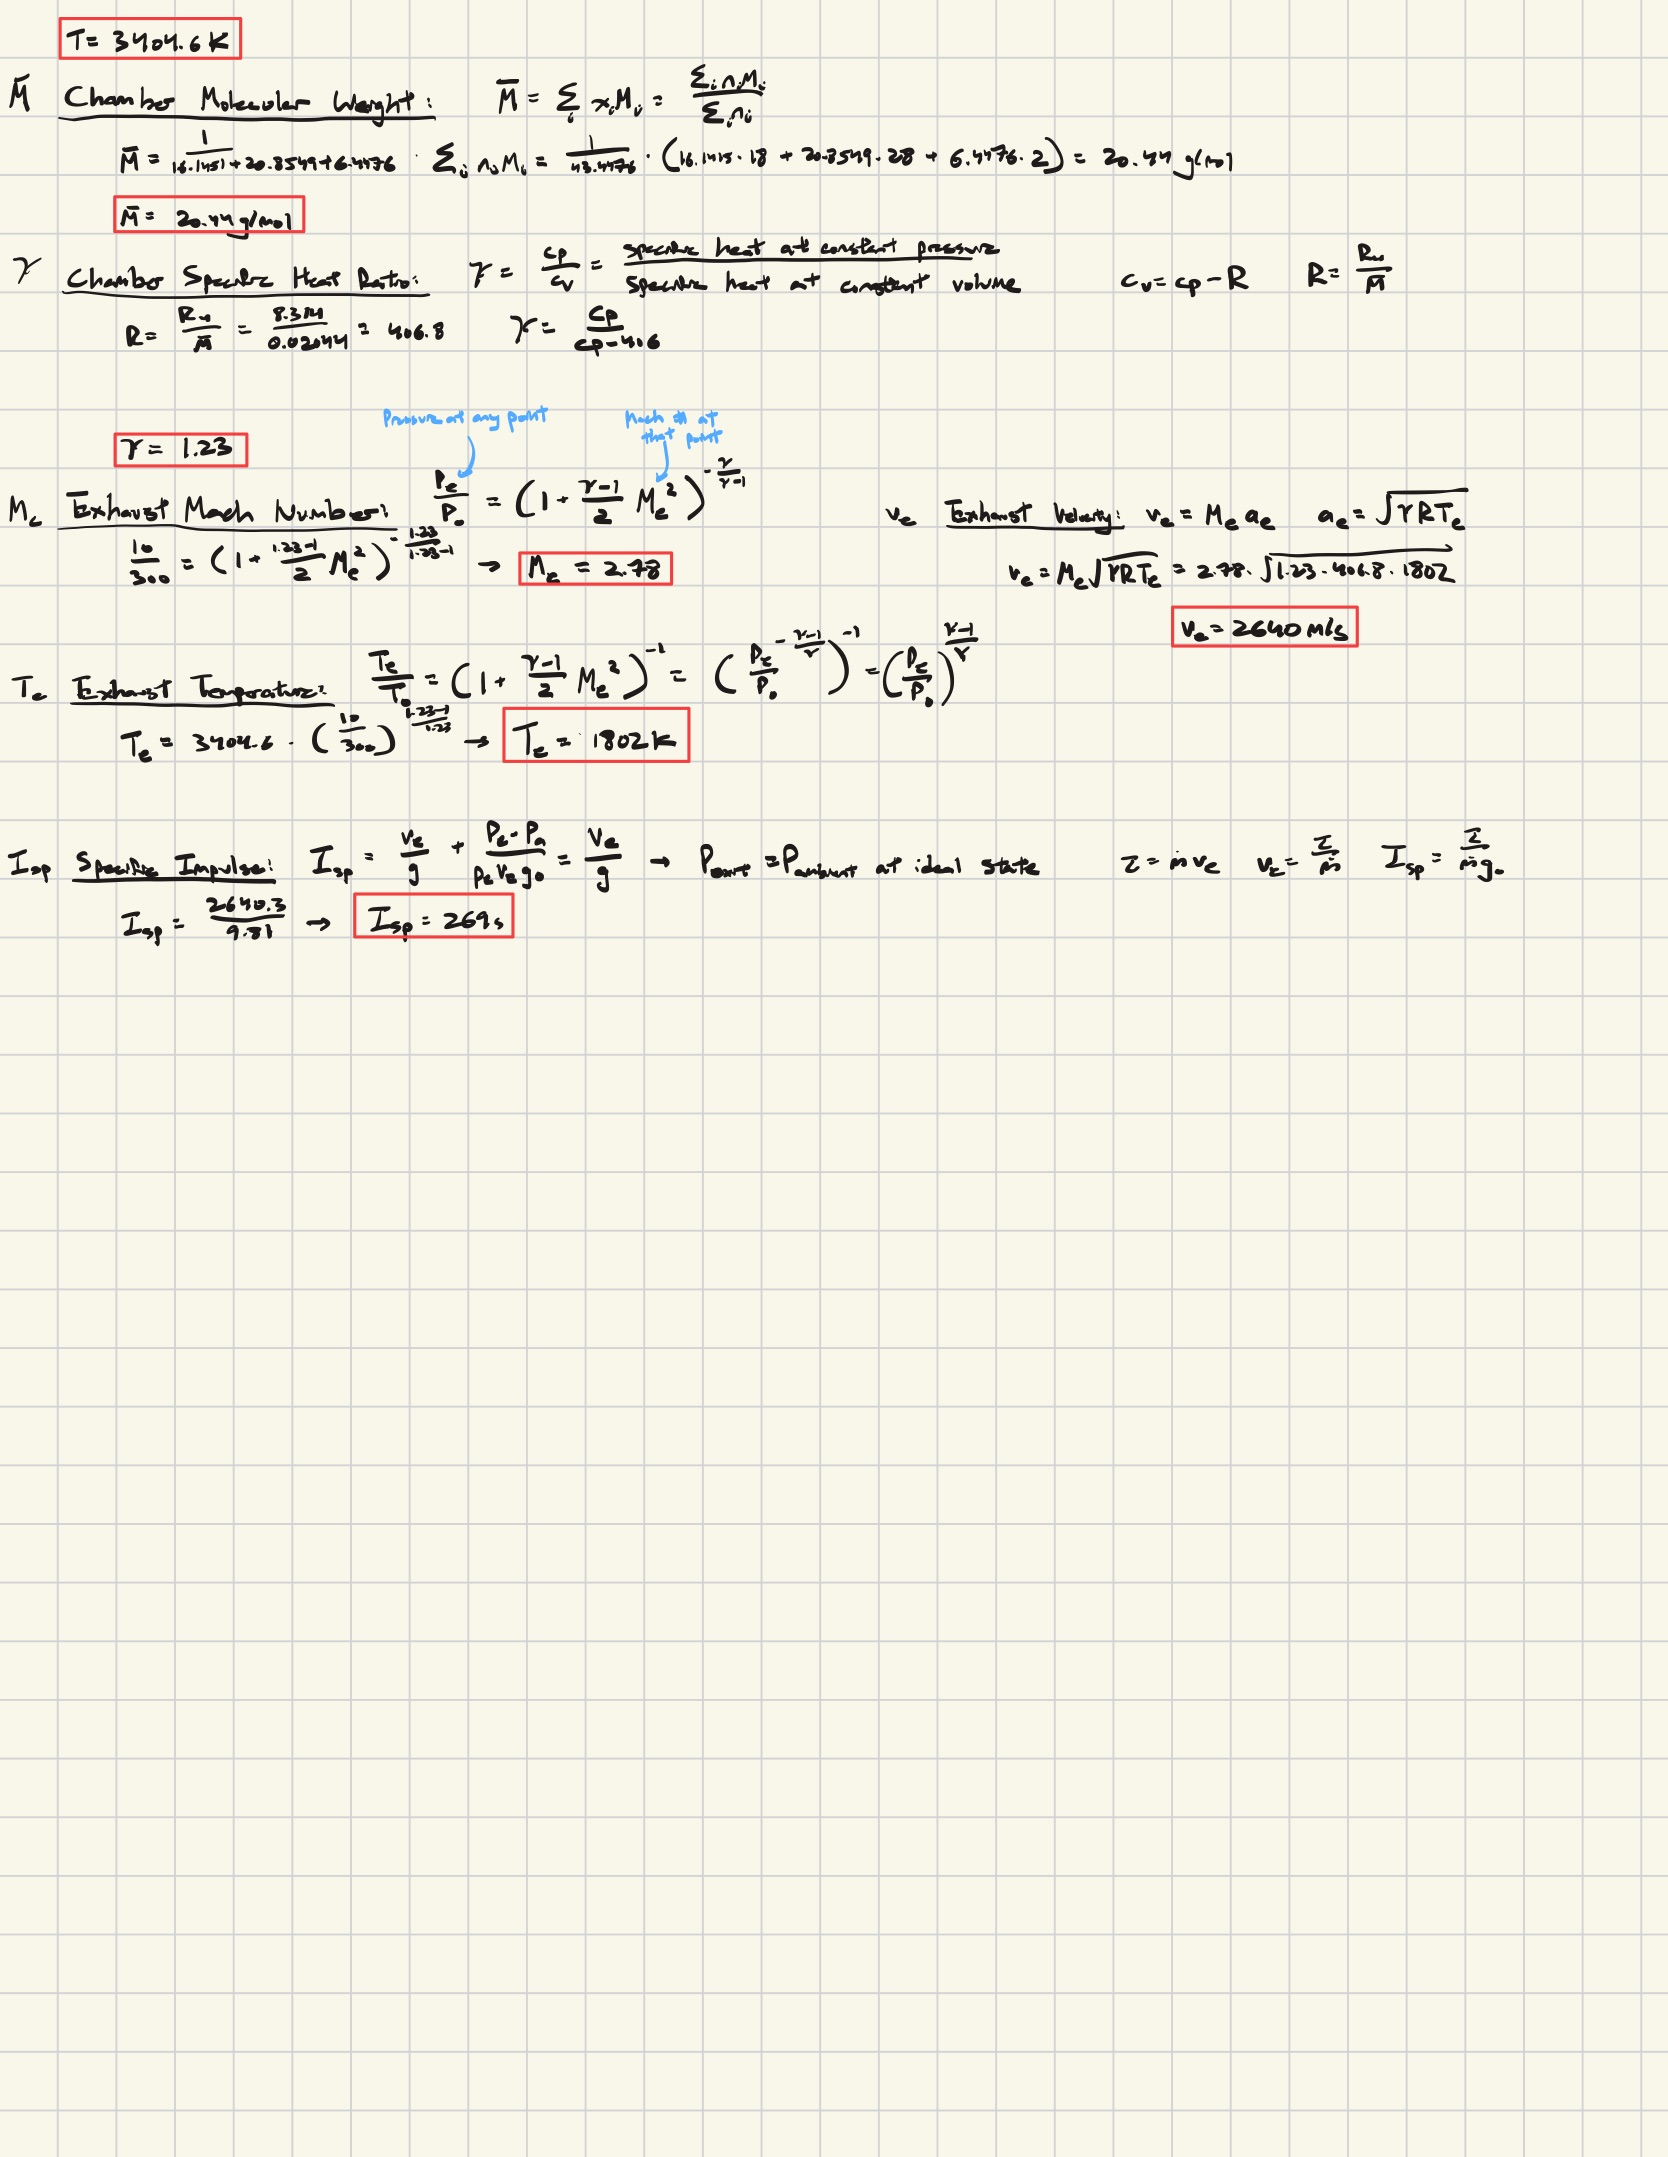 T = 3404.6 K
M̄ Chamber Molecular Weight: M̄ = Σᵢ xᵢMᵢ = Σᵢ nᵢMᵢ / Σᵢ nᵢ
M̄ = 1 / (16.1451 + 20.8549 + 6.4476) · Σᵢ nᵢMᵢ = 1/43.4476 · (16.1415 · 18 + 20.8549 · 28 + 6.4476 · 2) = 20.44 g/mol
M̄ = 20.44 g/mol
γ Chamber Specific Heat Ratio: γ = cp/cv = specific heat at constant pressure / specific heat at constant volume cv = cp - R R = Ru/M̄
R = Ru/M̄ = 8.314/0.02044 = 406.8 γ = cp/(cp - 406)
Pressure at any point
Mach # at that point
γ = 1.23
Me Exhaust Mach Number: Pe/P₀ = (1 + (γ-1)/2 Me²)^(-γ/(γ-1))
ve Exhaust Velocity: ve = Me ae ae = √(γRTe)
10/300 = (1 + (1.23-1)/2 Me²)^(-1.23/(1.23-1)) → Me = 2.78
ve = Me√(γRTe) = 2.78 · √(1.23 · 406.8 · 1802)
ve = 2640 m/s
Te Exhaust Temperature: Te/T₀ = (1 + (γ-1)/2 Me²)^-1 = (Pe/P₀^(-(γ-1)/γ))^-1 = (Pe/P₀)^((γ-1)/γ)
Te = 3404.6 · (10/300)^((1.23-1)/1.23) → Te = 1802 K
Isp Specific Impulse: Isp = ve/g + (Pe - Pa)/(ρe ve g₀) = ve/g → Pexit = Pambient at ideal state τ = ṁve ve = τ/ṁ Isp = τ/(ṁg₀)
Isp = 2640.3/9.81 → Isp = 269 s